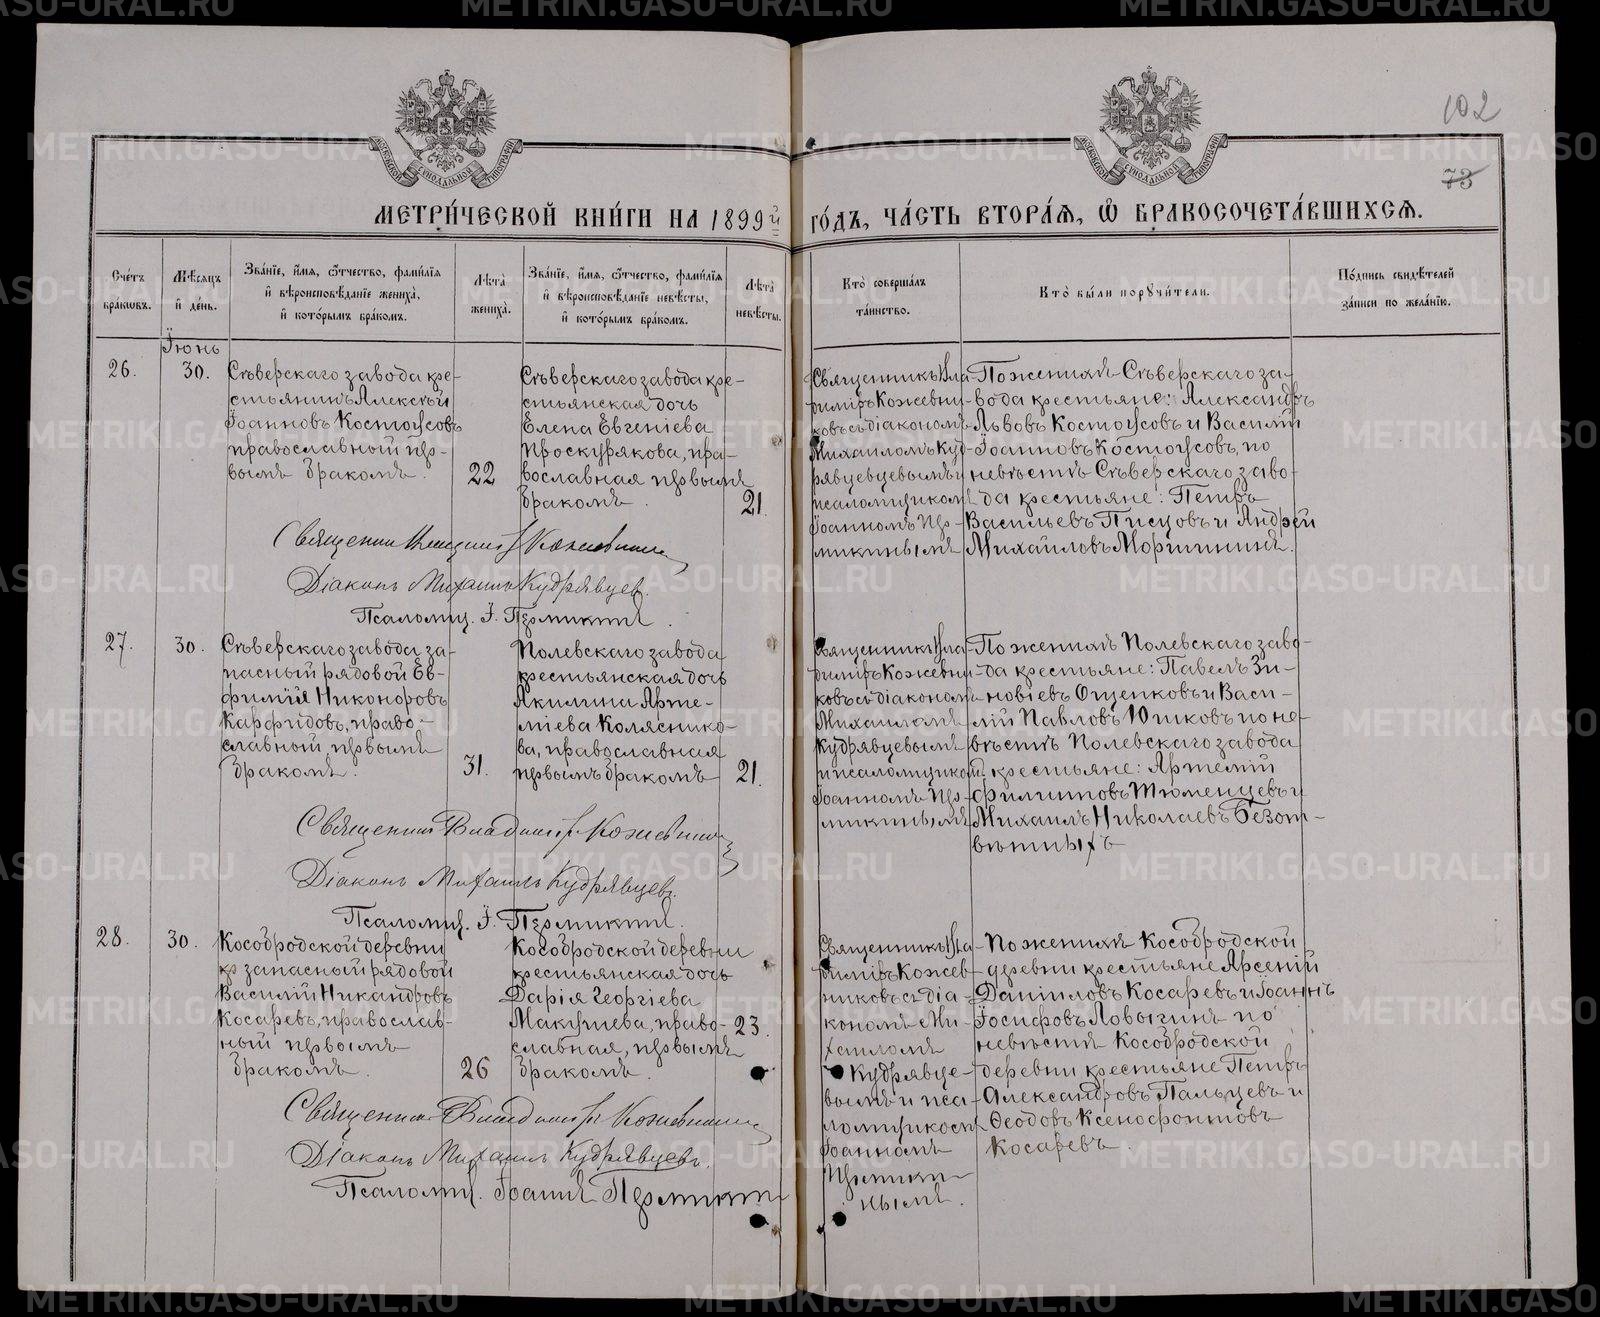 102
73
МОСКОВСКОЙ СѴНОДАЛЬНОЙ ТИПОГРАФІИ
МОСКОВСКОЙ СѴНОДАЛЬНОЙ ТИПОГРАФІИ
МЕТРИ́ЧЕСКОЙ КНИ́ГИ НА 1899й ГО́ДЪ, ЧА́СТЬ ВТОРА́Я, Ѡ҆ БРАКОСОЧЕТА́ВШИХСЯ.
Сче́тъ
бра́кѡвъ.
Мѣ́сяцъ
и҆ де́нь.
Зва́нїе, и҆́мя, ѻ҆́тчество, фами́лїя
и҆ вѣроисповѣ́данїе жениха̀,
и҆ кото́рымъ бра́комъ.
Лѣ́та
жениха̀.
Зва́нїе, и҆́мя, ѻ҆́тчество, фами́лїя
и҆ вѣроисповѣ́данїе невѣ́сты,
и҆ кото́рымъ бра́комъ.
Лѣ́та
невѣ́сты.
Кто̀ соверша́лъ
та́инство.
Кто̀ бы́ли поручи́тели.
По́дпись свидѣ́телей
за́писи по жела́нїю.
Іюнь
26.
30.
Сѣверскаго завода кре-
стьянинъ Алексѣй
Іоанновъ Костоусовъ
православный пер-
вымъ бракомъ.
22
Сѣверскаго завода кре-
стьянская дочь
Елена Евгеніева
Проскурякова, пра-
вославная первымъ
бракомъ.
21.
Священникъ Вла-
диміръ Кожевни-
ковъ съ діакономъ
Михаиломъ Куд-
рявцевымъ и
псаломщикомъ
Іоанномъ Пер-
микинымъ
По женихѣ Сѣверскаго за-
вода крестьяне: Александръ
Львовъ Костоусовъ и Василій
Іоанновъ Костоусовъ, по
невѣстѣ Сѣверскаго заво-
да крестьяне: Петръ
Васильевъ Писцовъ и Андрей
Михайловъ Моргининъ.
Священник Владимір Кожевников
Діаконъ Михаилъ Кудрявцев.
Псаломщ. І. Пермикинъ.
27.
30.
Сѣверскаго завода за-
пасный рядовой Ев-
фимій Никоноровъ
Карфидовъ, право-
славный, первымъ
бракомъ.
31.
Полевскаго завода
крестьянская дочь
Акилина Арте-
міева Коляснико-
ва, православная
первымъ бракомъ
21.
Священникъ Вла-
диміръ Кожевни-
ковъ съ діакономъ
Михаиломъ
Кудрявцевымъ
и псаломщикомъ
Іоанномъ Пер-
микинымъ
По женихѣ Полевскаго заво-
да крестьяне: Павелъ Зи-
новіевъ Ощепковъ и Васи-
лій Павловъ Юшковъ по не-
вѣстѣ Полевскаго завода
крестьяне: Артемій
Филипповъ Тюменцевъ и
Михаилъ Николаевъ Безот-
вѣтныхъ
Священник Владимір Кожевников
Діаконъ Михаилъ Кудрявцевъ.
Псаломщ. І. Пермикинъ.
28.
30.
Кособродской деревни
кр запасный рядовой
Василій Никандровъ
Косаревъ, православ-
ный первымъ
бракомъ.
26
Кособродской деревни
крестьянская дочь
Дарія Георгіева
Макушева, право-
славная, первымъ
бракомъ.
23.
Священникъ Вла-
диміръ Кожев-
никовъ съ діа-
кономъ Ми-
хаиломъ
Кудрявце-
вымъ и пса-
ломщикомъ
Іоанномъ
Пермики-
нымъ.
По женихѣ Кособродской
деревни крестьяне Арсеній
Даніиловъ Косаревъ и Іоаннъ
Іосифовъ Ловыгинъ по
невѣстѣ Кособродской
деревни крестьяне Петръ
Александровъ Пальцевъ и
Ѳеодоръ Ксенофонтовъ
Косаревъ.
Священник Владимір Кожевников
Діаконъ Михаилъ Кудрявцевъ.
Псаломщ. Іоаннъ Пермикин
METRIKI.GASO-URAL.RU